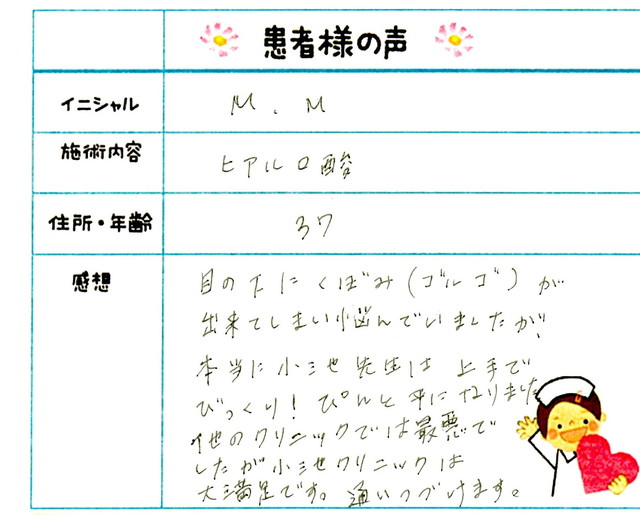 患者様の声
イニシャル M. M
施術内容 ヒアルロ酸
住所・年齢 37
感想
目の下にくぼみ(ゴルゴ)が
出来てしまい悩んでいましたが、
本当に小三也先生は上手で
びっくり!ぴんと平になりました
他のクリニックでは最悪で
したが小三也クリニックは
大満足です。通いつづけます。